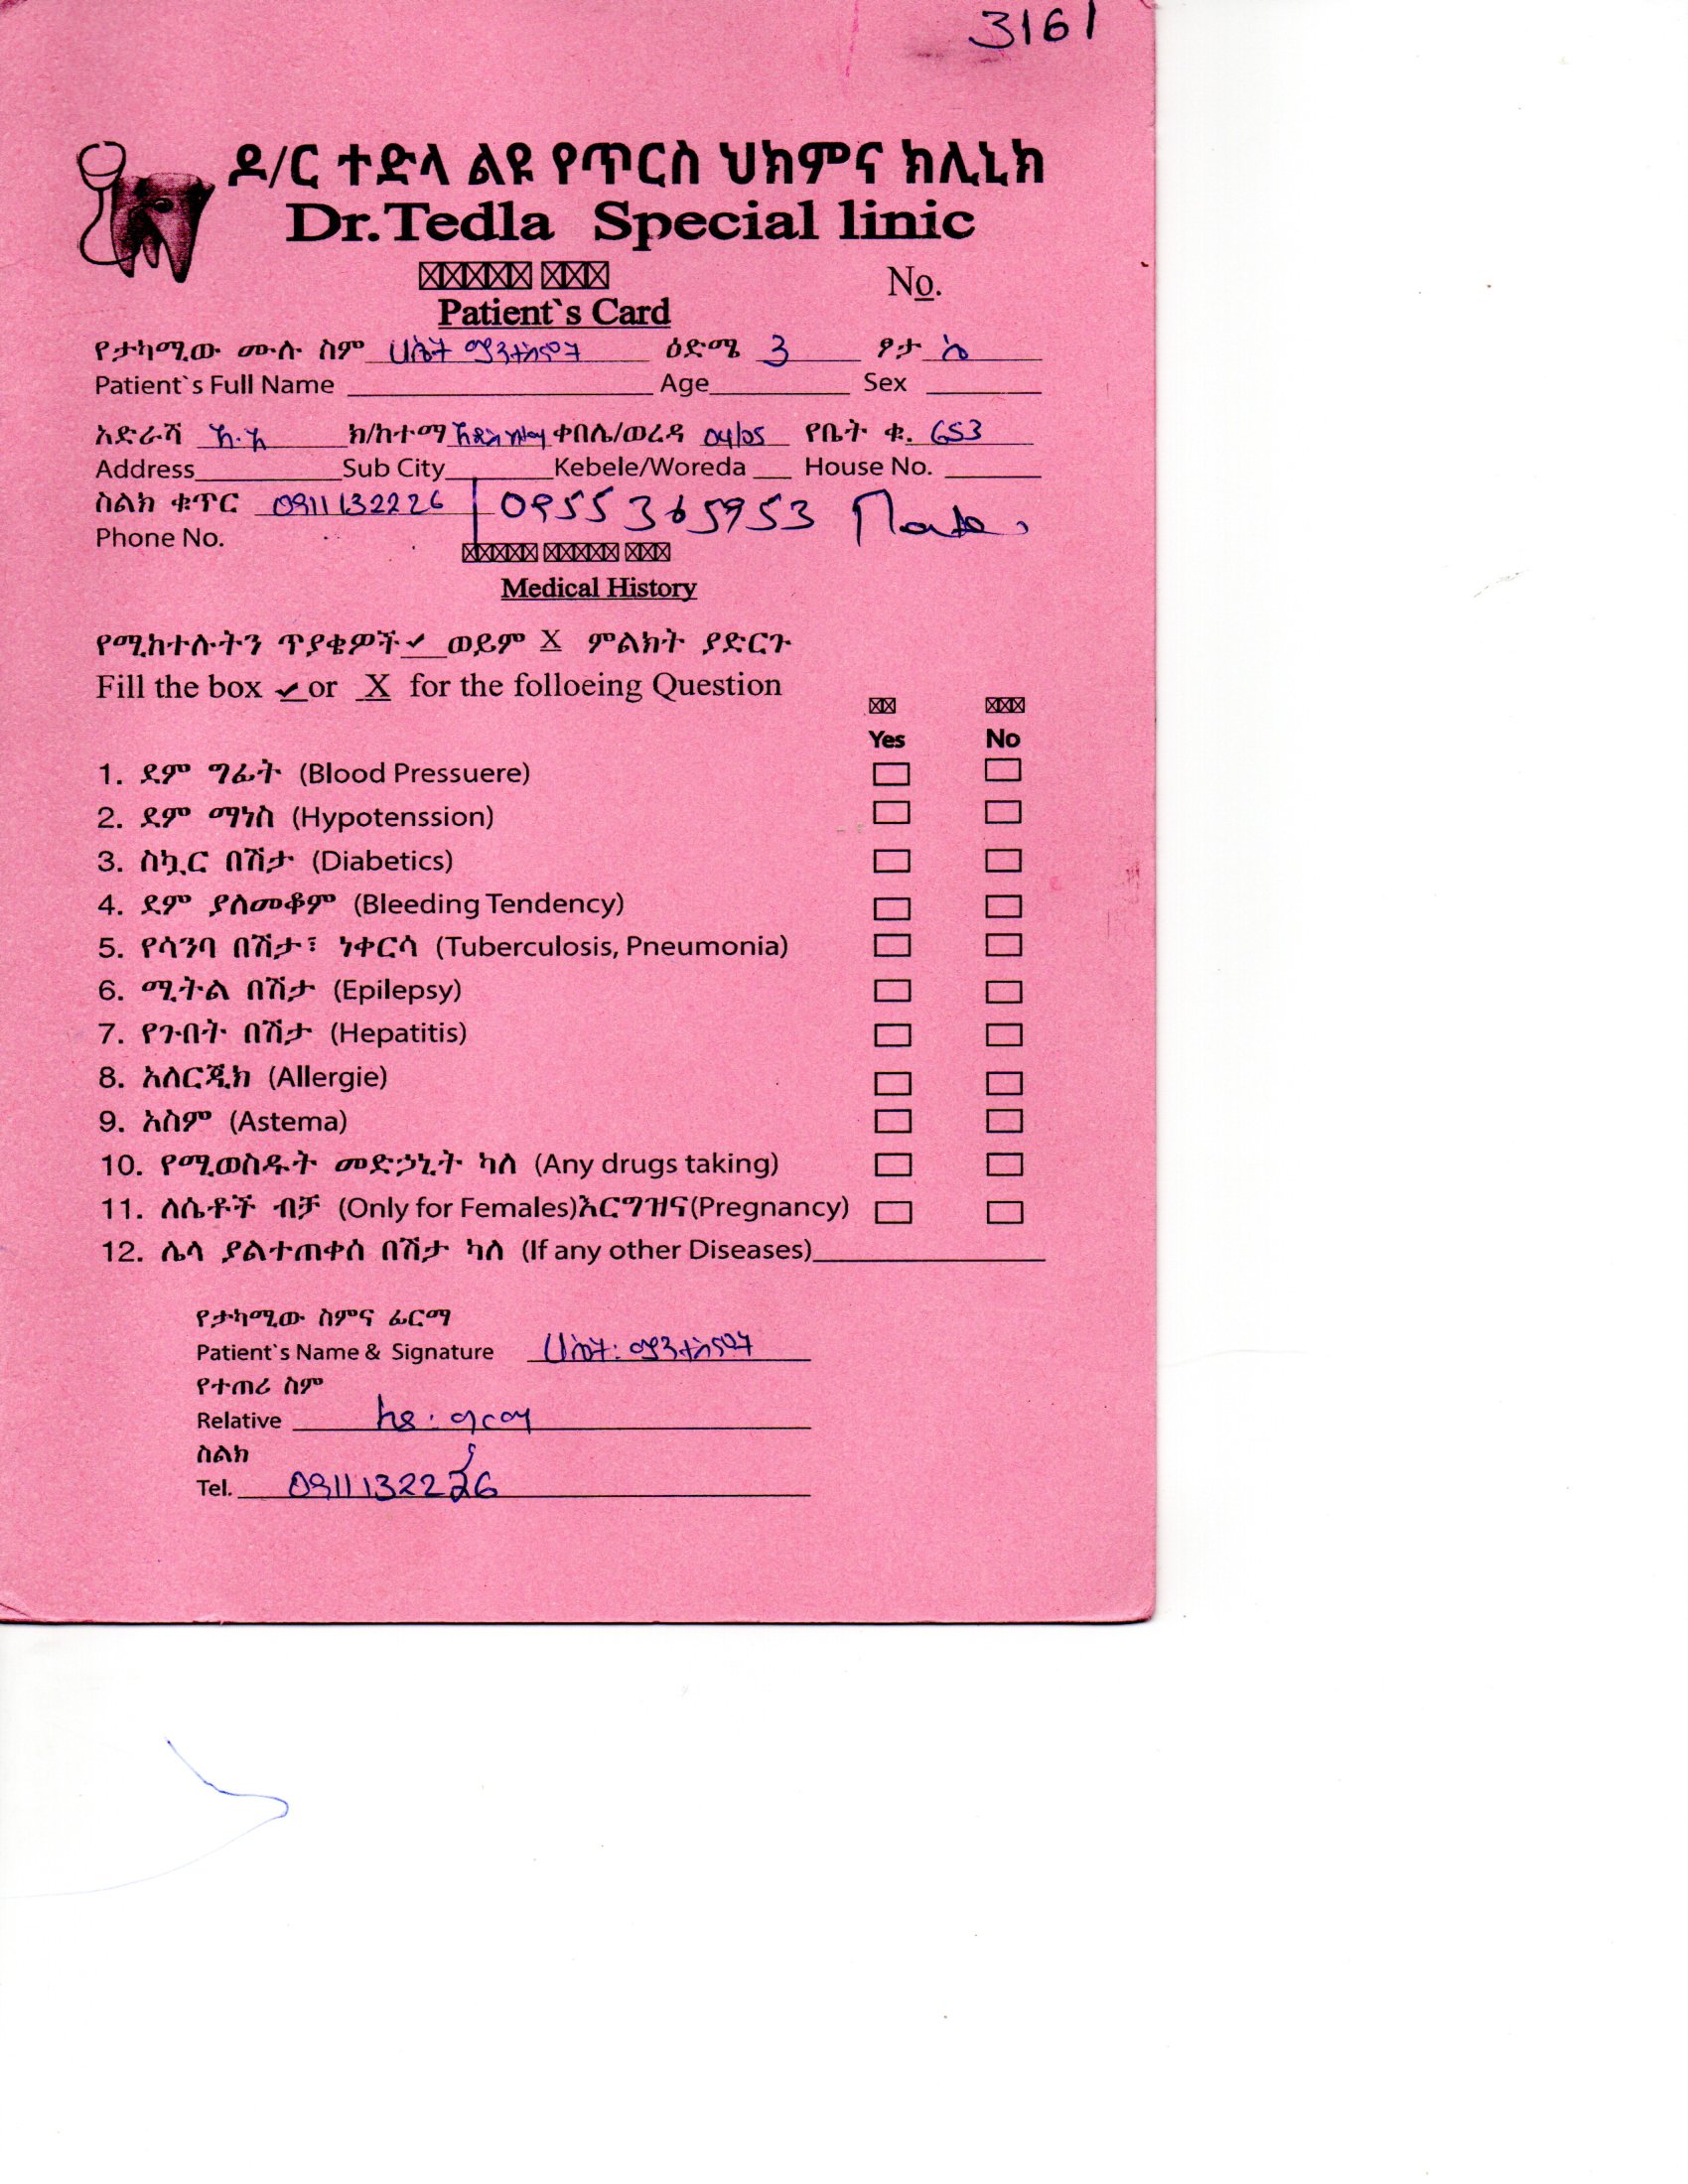 3161
ዶ/ር ተድላ ልዩ የጥርስ ህክምና ክሊኒክ
Dr.Tedla Special linic
No.
Patient`s Card
የታካሚው ሙሉ ስም ዕድሜ 3 ፆታ
Patient`s Full Name Age Sex
አድራሻ አ.አ ክ/ከተማ ቀበሌ/ወረዳ 04/05 የቤት ቁ. 653
Address Sub City Kebele/Woreda House No.
ስልክ ቁጥር 0911132226 0955365953
Phone No.
Medical History
የሚከተሉትን ጥያቄዎች ✓ ወይም X ምልክት ያድርጉ
Fill the box ✓ or X for the folloeing Question
Yes No
1. ደም ግፊት (Blood Pressuere)
2. ደም ማነስ (Hypotenssion)
3. ስኳር በሽታ (Diabetics)
4. ደም ያለመቆም (Bleeding Tendency)
5. የሳንባ በሽታ፣ ነቀርሳ (Tuberculosis, Pneumonia)
6. ሚትል በሽታ (Epilepsy)
7. የጉበት በሽታ (Hepatitis)
8. አለርጂክ (Allergie)
9. አስም (Astema)
10. የሚወስዱት መድኃኒት ካለ (Any drugs taking)
11. ለሴቶች ብቻ (Only for Females)እርግዝና(Pregnancy)
12. ሌላ ያልተጠቀሰ በሽታ ካለ (If any other Diseases)
የታካሚው ስምና ፊርማ
Patient`s Name & Signature
የተጠሪ ስም
Relative
ስልክ
Tel. 0911132226